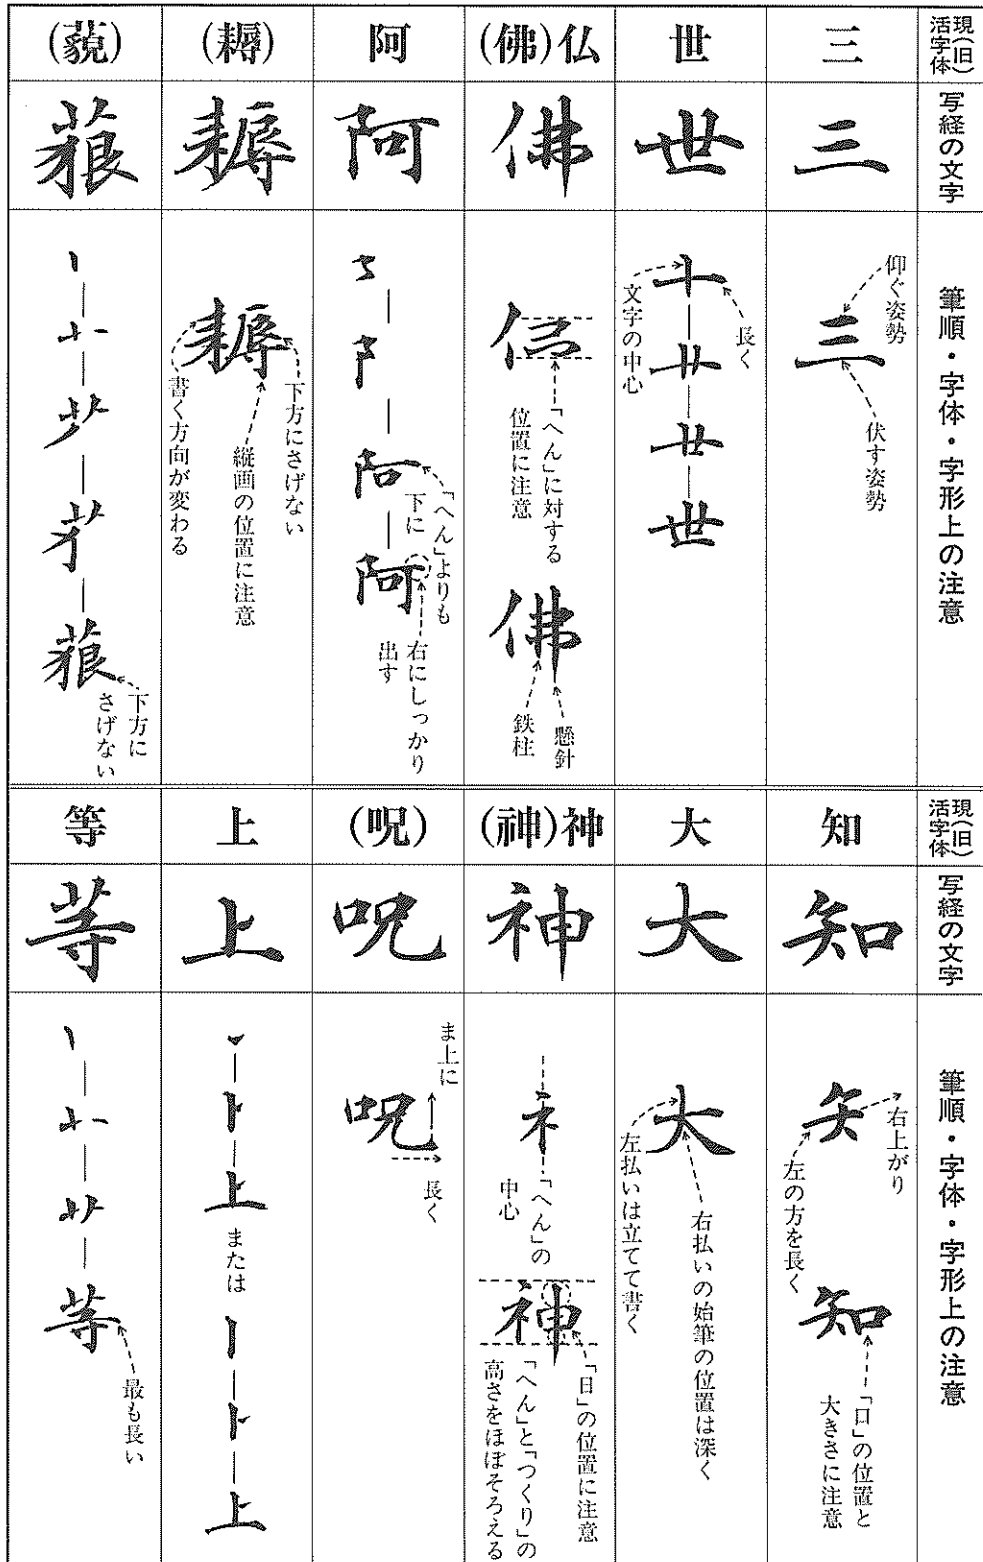 現(旧)活字体
写経の文字
筆順・字体・字形上の注意
三
三
三
仰ぐ姿勢
伏す姿勢
世
世
長く
文字の中心
世
(佛)仏
佛
「へん」に対する
位置に注意
佛
懸針
鉄柱
阿
阿
「へん」よりも
下に
阿
右にしっかり
出す
(耨)
耨
耨
下方にさげない
縦画の位置に注意
書く方向が変わる
(藐)
藐
下方に
さげない
現(旧)活字体
写経の文字
筆順・字体・字形上の注意
知
知
右上がり
左の方を長く
知
「口」の位置と
大きさに注意
大
大
大
右払いの始筆の位置は深く
左払いは立てて書く
(神)神
神
「へん」の
中心
神
「日」の位置に注意
「へん」と「つくり」の
高さをほぼそろえる
(呪)
呪
ま上に
呪
長く
上
上
上
または
上
等
等
等
最も長い